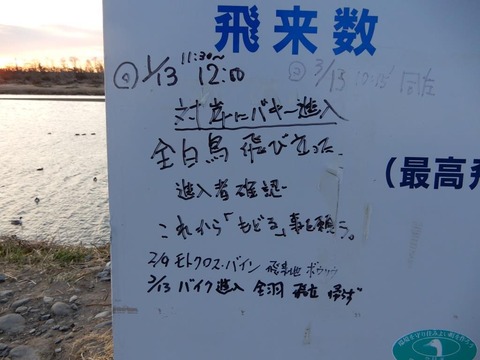 飛来数
① 1/13 11:30~
12:00
② 3/13
対岸にバギー進入
全白鳥 飛び立った
進入者確認
これから「もどる」事を願う。
2/9 モトクロス・バイン
3/13 バイク進入 全羽 飛立
(最高飛